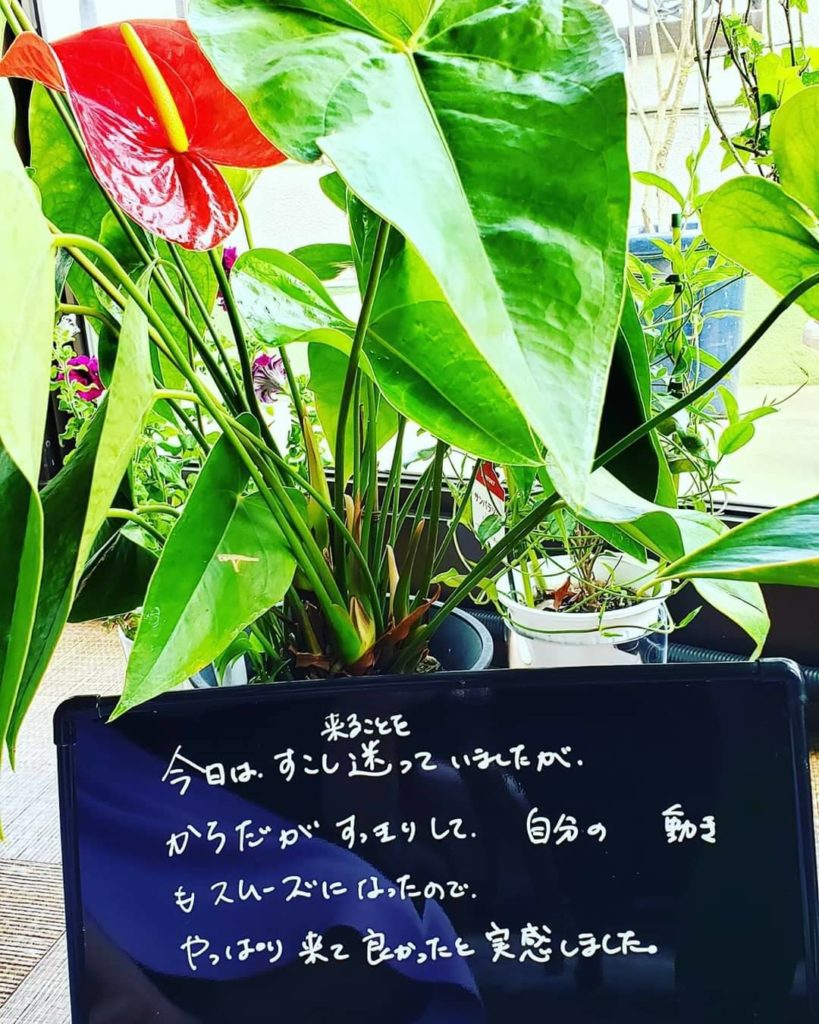 サンパラ
来ることを
今日は、すこし迷っていましたが、
からだがすっきりして、自分の 動き
もスムーズになったので、
やっぱり来て良かったと実感しました。